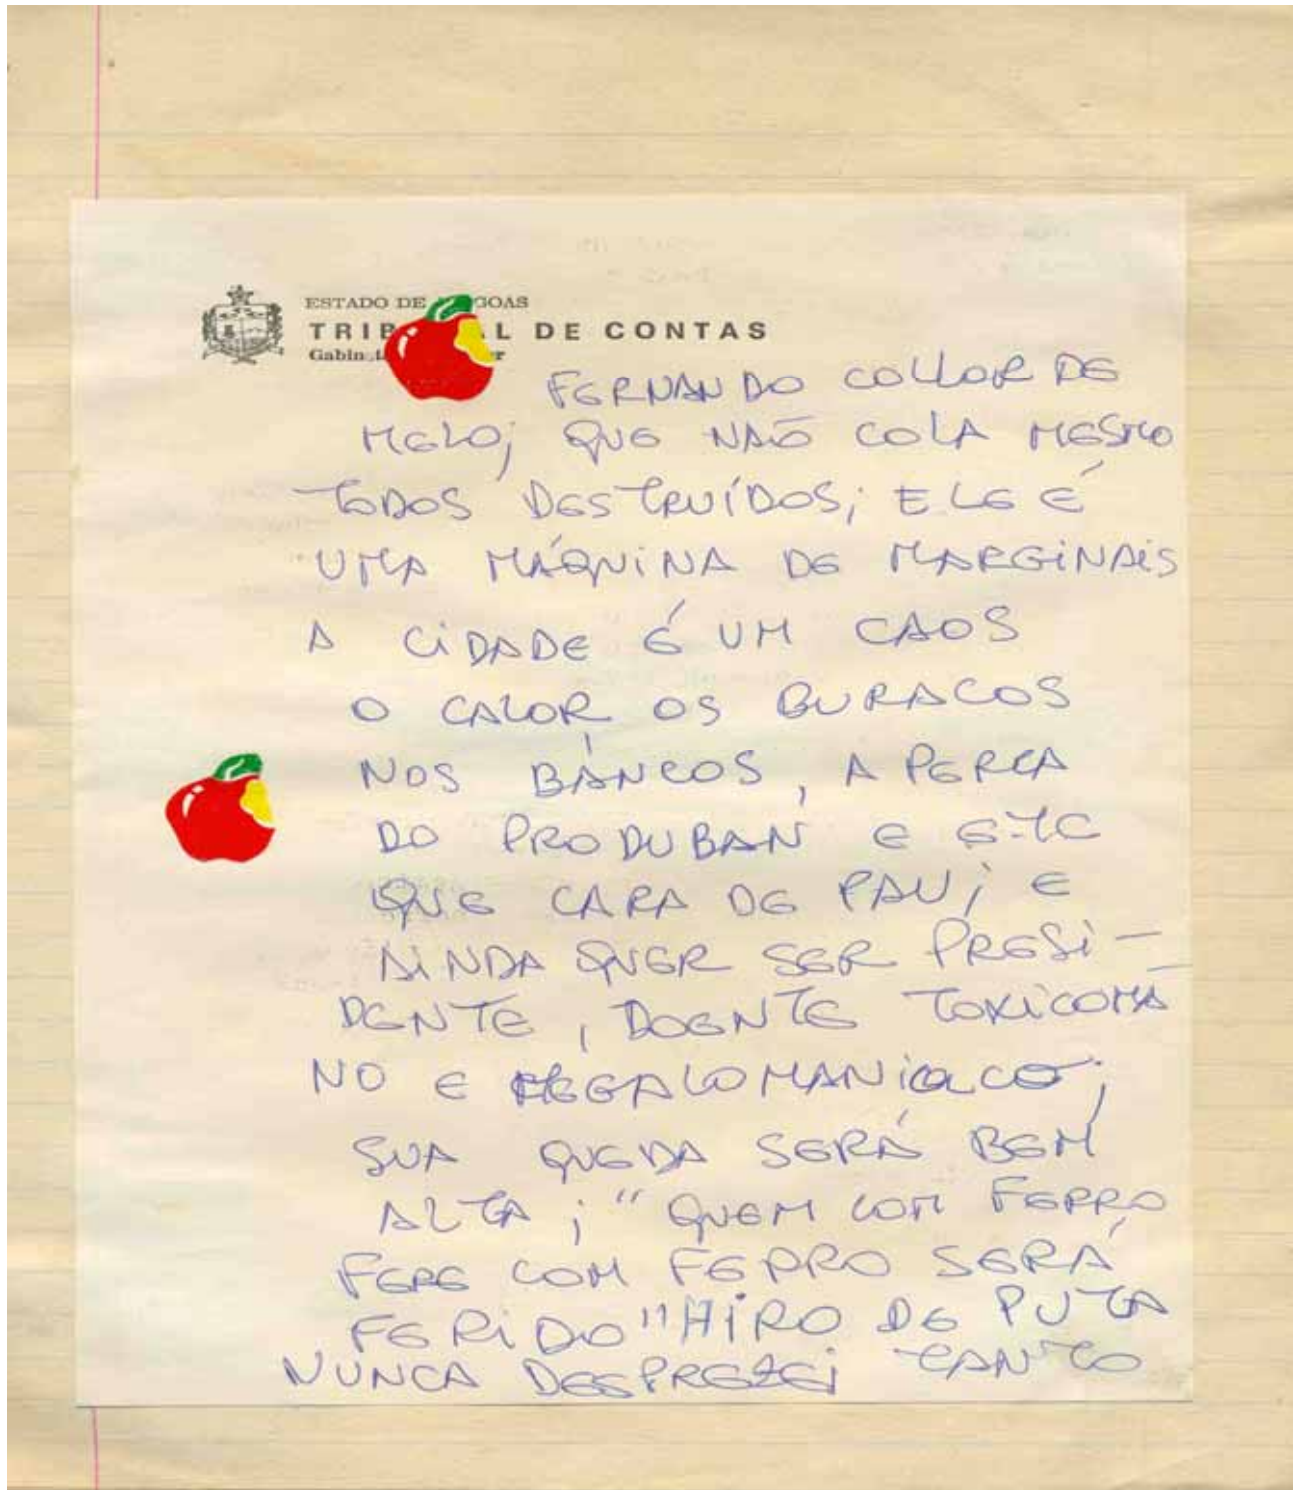 ESTADO DE GOAS
TRIB L DE CONTAS
FERNANDO COLLOR DE
MELO; QUE NÃO COLA MESMO
TODOS DESTRUÍDOS; ELE É
UMA MÁQUINA DE MARGINAIS
A CIDADE É UM CAOS
O CALOR OS BURACOS
NOS BÂNCOS, A PERCA
DO PRODUBAN E ETC
QUE CARA DE PAU; E
AINDA QUER SER PRESI-
DENTE, DOENTE TOXICOMA
NO E MEGALOMANIACO;
SUA QUEDA SERÁ BEM
ALTA; "QUEM COM FERRO
FERE COM FERRO SERÁ
FERIDO" HIRO DE PUTA
NUNCA DESPREZEI TANTO